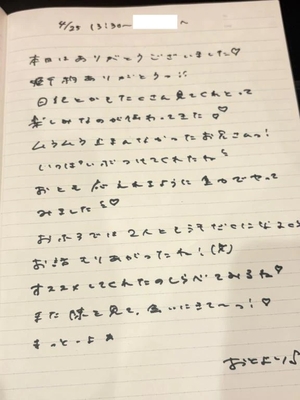 4/25 13:30〜 へ
本日はありがとうございました♡
差し入れありがとうっ!!
日記とかもたくさん見てくれとって
楽しみなのが伝わってきた♡
ムラムラ止まんなかったお兄さんっ!
いっぱいボつけてくれたね
おとも 応えれるように 生めでやって
みました♡
おふろでは 2人とも
お話でもりあがったね!(笑)
オススメしてくれたのしらべてみるね♡
また隙を見て、会いにきて〜っ!♡
まっと〜よ
おとより♪